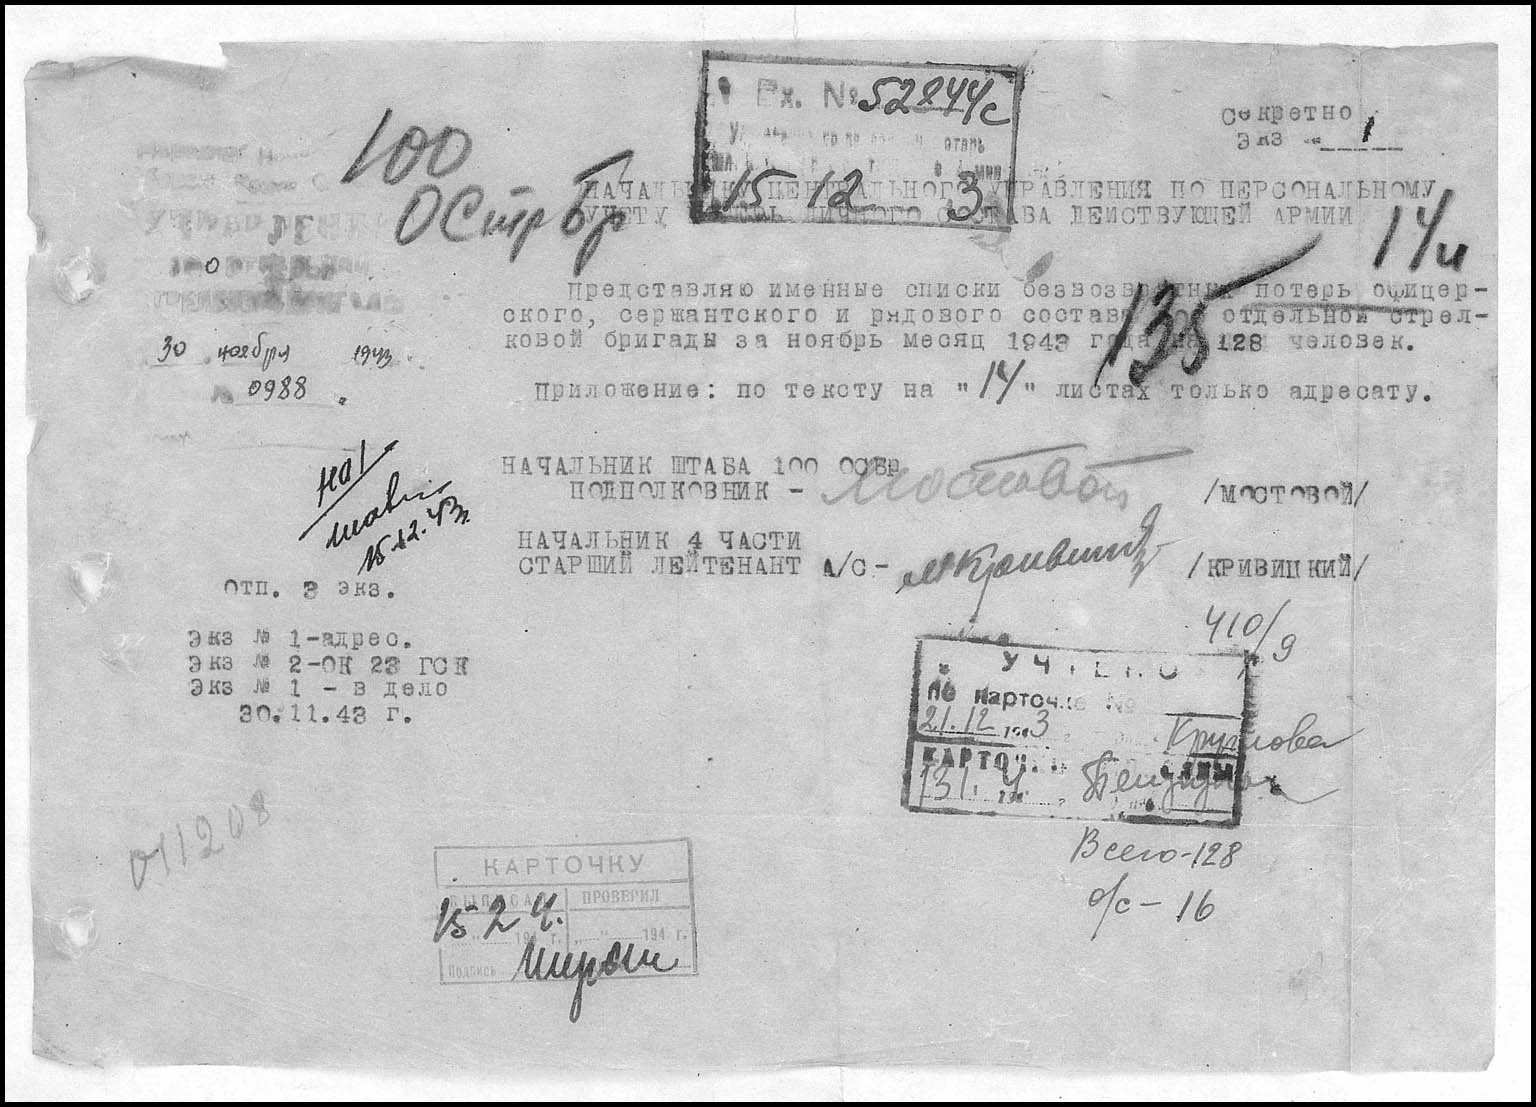 Вх. № 52844с
15 12 3
Секретно
Экз № 1
100
ОСтрБр
НАЧАЛЬНИКУ ЦЕНТРАЛЬНОГО УПРАВЛЕНИЯ ПО ПЕРСОНАЛЬНОМУ
УЧЕТУ ПОТЕРЬ ЛИЧНОГО СОСТАВА ДЕЙСТВУЮЩЕЙ АРМИИ
14и
135
Представляю именные списки безвозвратных потерь офицер-
ского, сержантского и рядового состава 100 отдельной стрел-
ковой бригады за ноябрь месяц 1943 года на 128 человек.
30 ноября 1943.
№ 0988.
Приложение: по тексту на "14" листах только адресату.
НАЧАЛЬНИК ШТАБА 100 ОСБР
ПОДПОЛКОВНИК - Мостовой /МОСТОВОЙ/
НАЧАЛЬНИК 4 ЧАСТИ
СТАРШИЙ ЛЕЙТЕНАНТ А/С - /КРИВИЦКИЙ/
15.12.43г.
отп. 3 экз.
Экз № 1-адрес.
Экз № 2-ОК 23 ГСК
Экз № 1 - в дело
30.11.43 г.
410/9
УЧТЕНО
по карточке №
21.12 1943 Круглова
КАРТОЧ
131. 4 194 г
Всего-128
о/с - 16
011208
КАРТОЧКУ
ВЫПИСАЛ ПРОВЕРИЛ
15 2 4.
194 г. „ " 194 г.
Подпись